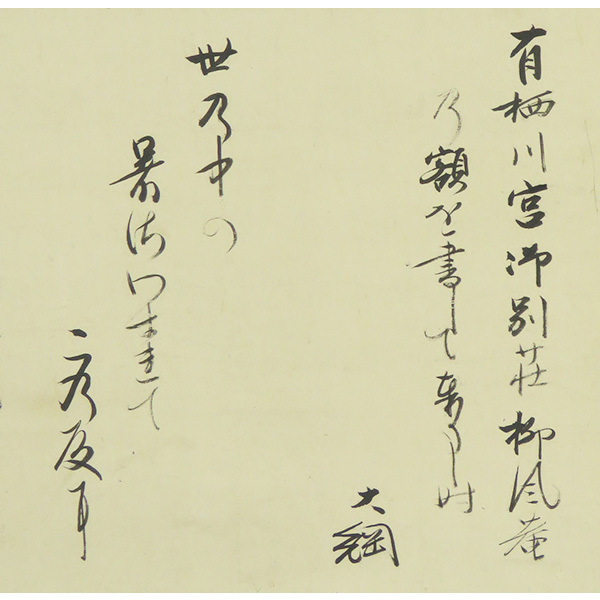 有栖川宮御別荘柳風菴
乃額を書して奉りし時
大綱
世乃中の
暑さはわすれて